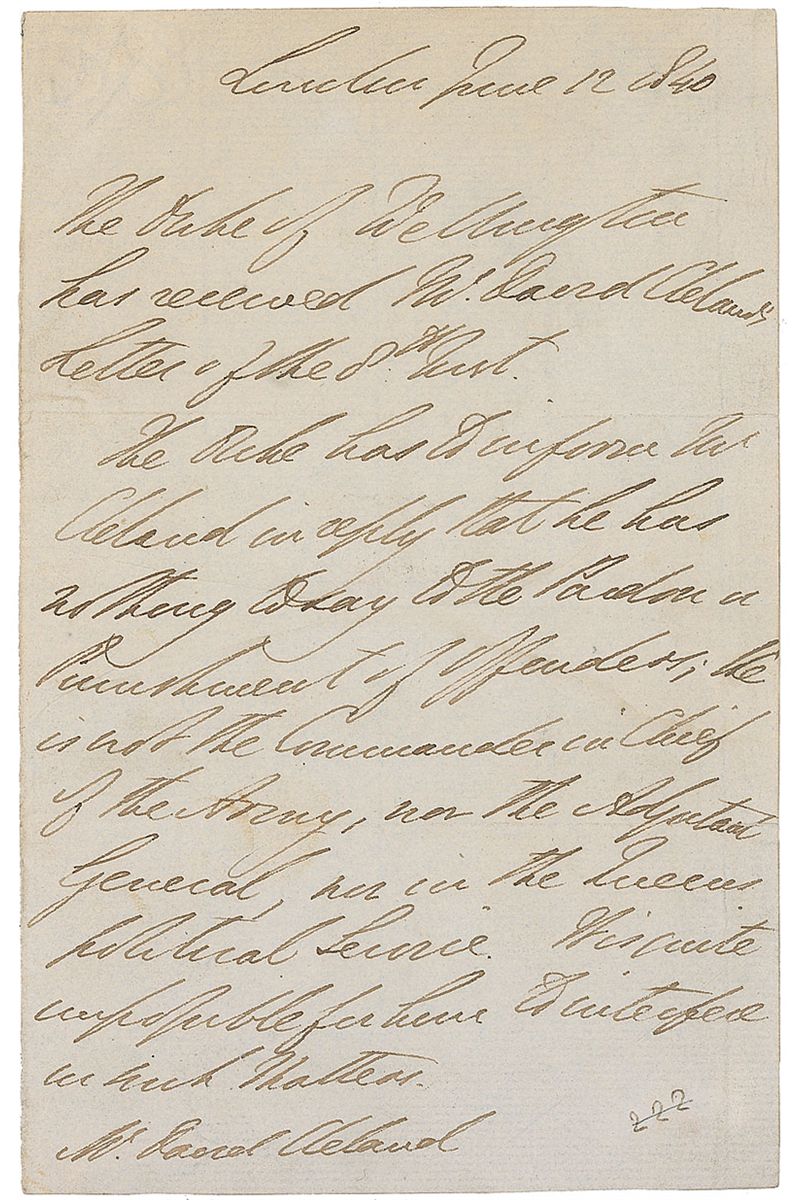 London June 12 1840
The Duke of Wellington
has received Mr. David Cleland's
Letter of the 8th Inst.
The Duke has to inform Mr
Cleland in reply that he has
nothing to say to the Pardon or
Punishment of offenders; He
is not the Commander in Chief
of the Army, nor the Adjutant
General, nor in the Queen's
political Service. It is quite
impossible for him to interfere
in such Matters.
Mr. David Cleland
222